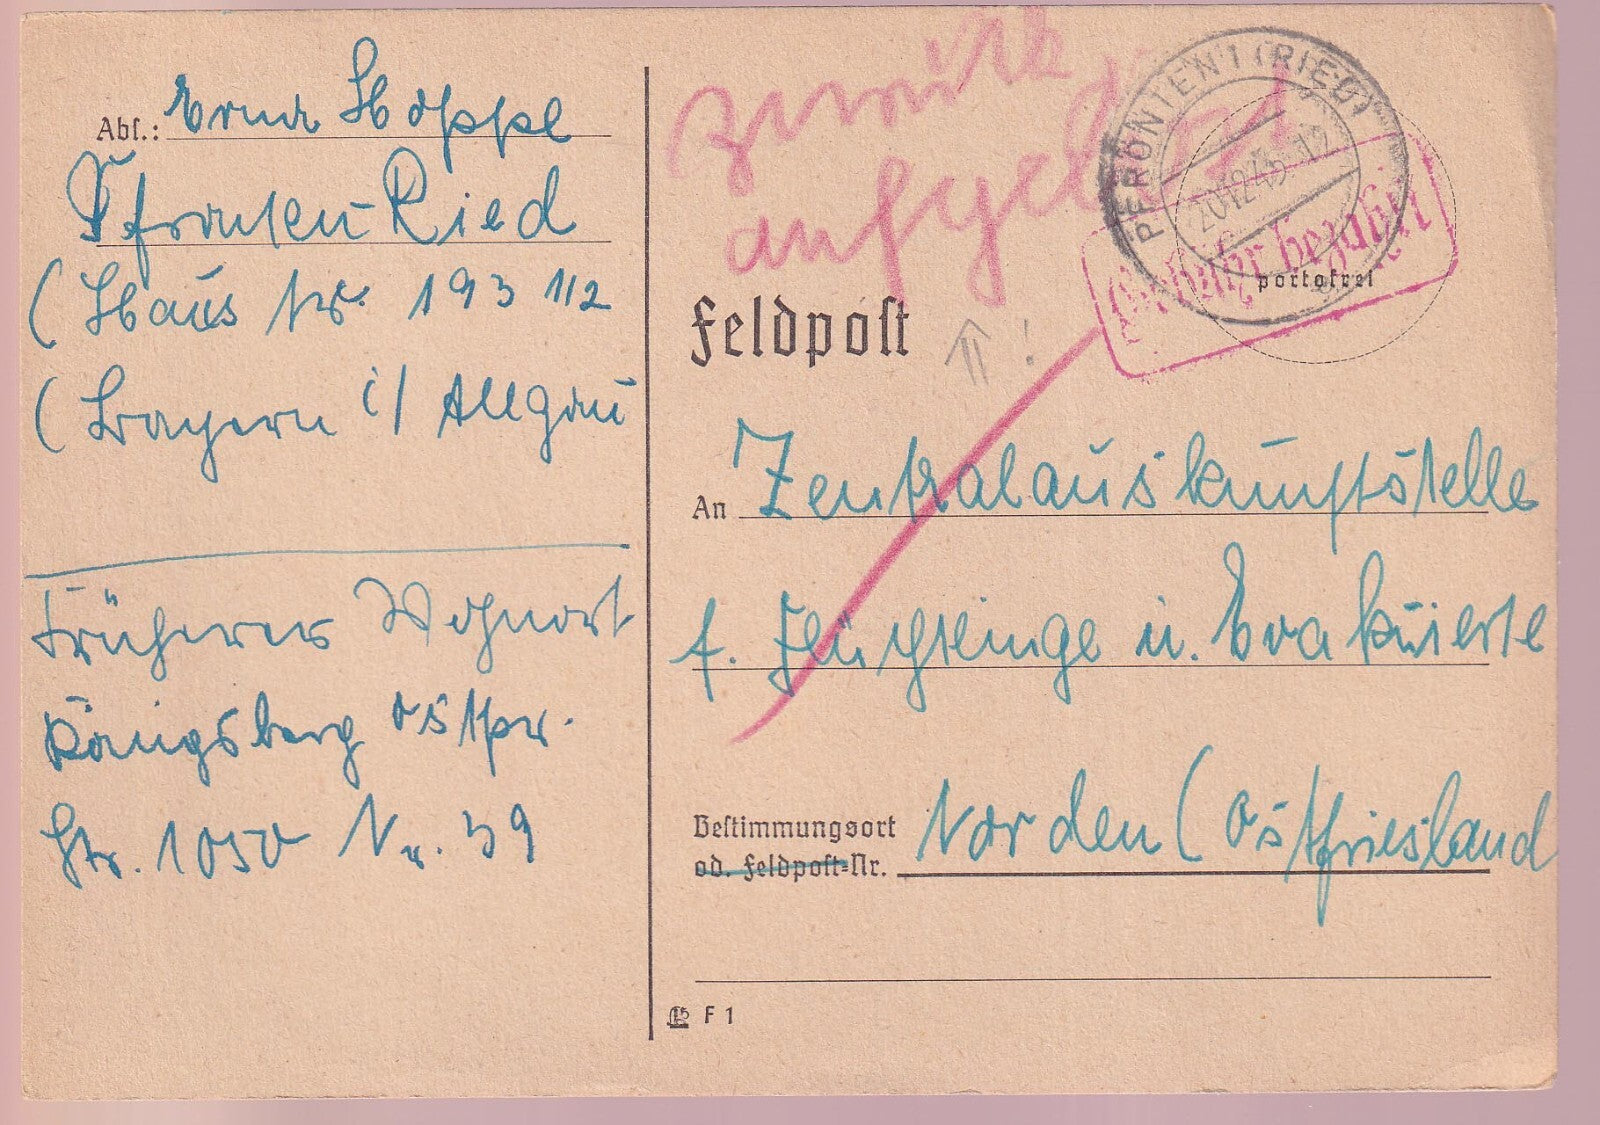 Abs.: Erna Hoppe
Pfronten-Ried
(Haus Nr. 193 1/2
(Bayern i/ Allgäu
Früherer Wohnort
Königsberg Ostpr.
Str. 1050 Nr. 39
zurück
aufgelöst
PFRONTEN 1 (RIED)
20.12.45. 12
Gebühr bezahlt
portofrei
Feldpost
!
An Zentralauskunftsstelle
f. Flüchtlinge u. Evakuierte
Bestimmungsort
od. Feldpost=Nr.
Norden (Ostfriesland
F 1